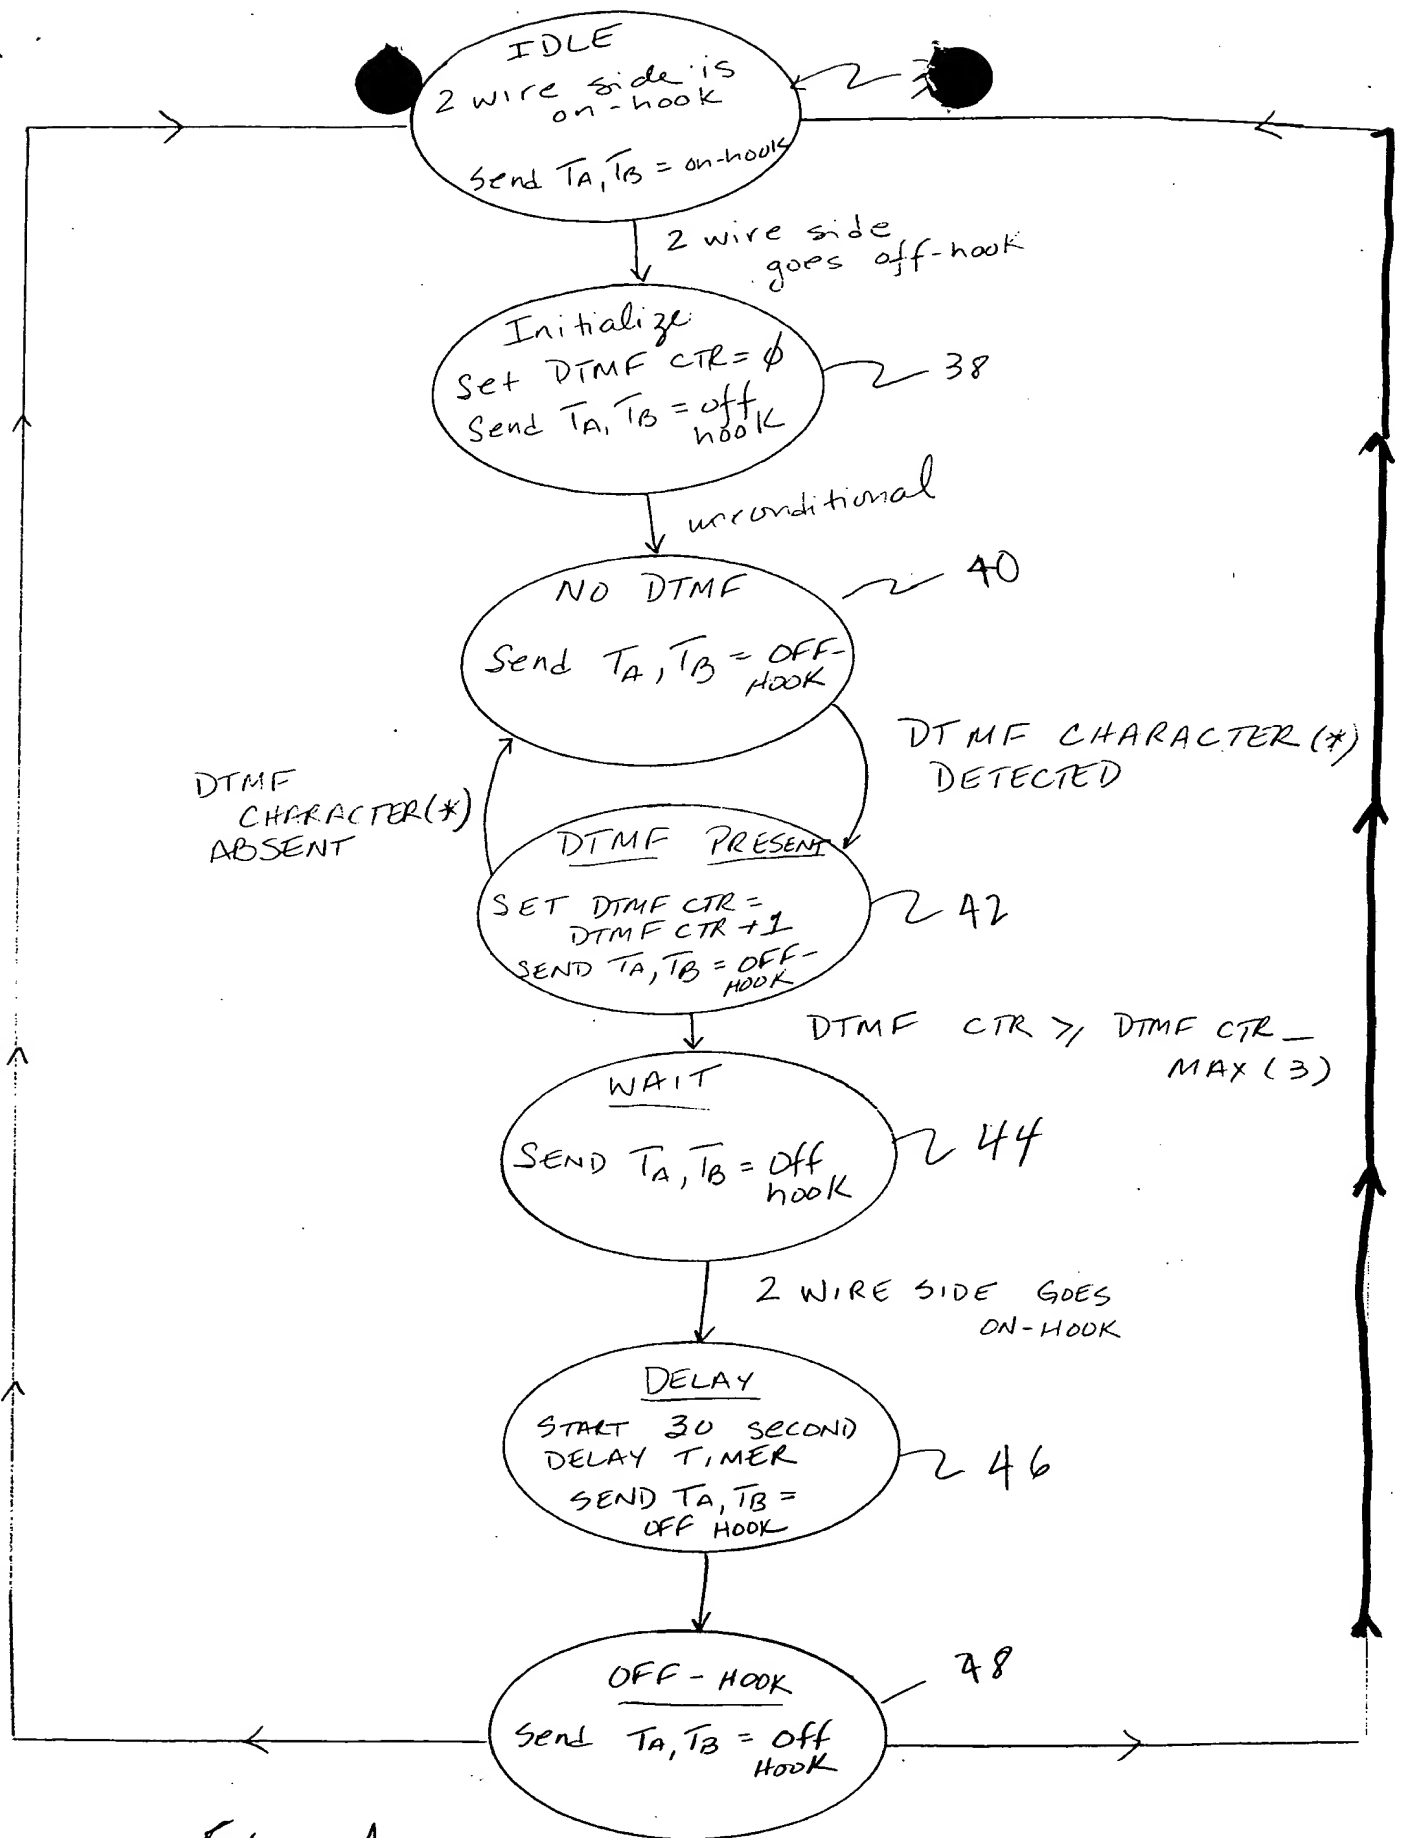 IDLE
2 wire side is
on-hook
Send TA, TB = on-hook
2 wire side
goes off-hook
Initialize
Set DTMF CTR = ϕ
Send TA, TB = off
hook
38
unconditional
40
NO DTMF
Send TA, TB = OFF-
HOOK
DTMF CHARACTER (*)
DETECTED
DTMF
CHARACTER (*)
ABSENT
DTMF PRESENT
SET DTMF CTR =
DTMF CTR + 1
SEND TA, TB = OFF-
HOOK
42
DTMF CTR ⩾ DTMF CTR_
MAX (3)
WAIT
SEND TA, TB = Off
hook
44
2 WIRE SIDE GOES
ON-HOOK
DELAY
START 30 SECOND
DELAY TIMER
SEND TA, TB =
OFF HOOK
46
OFF-HOOK
Send TA, TB = Off
HOOK
48